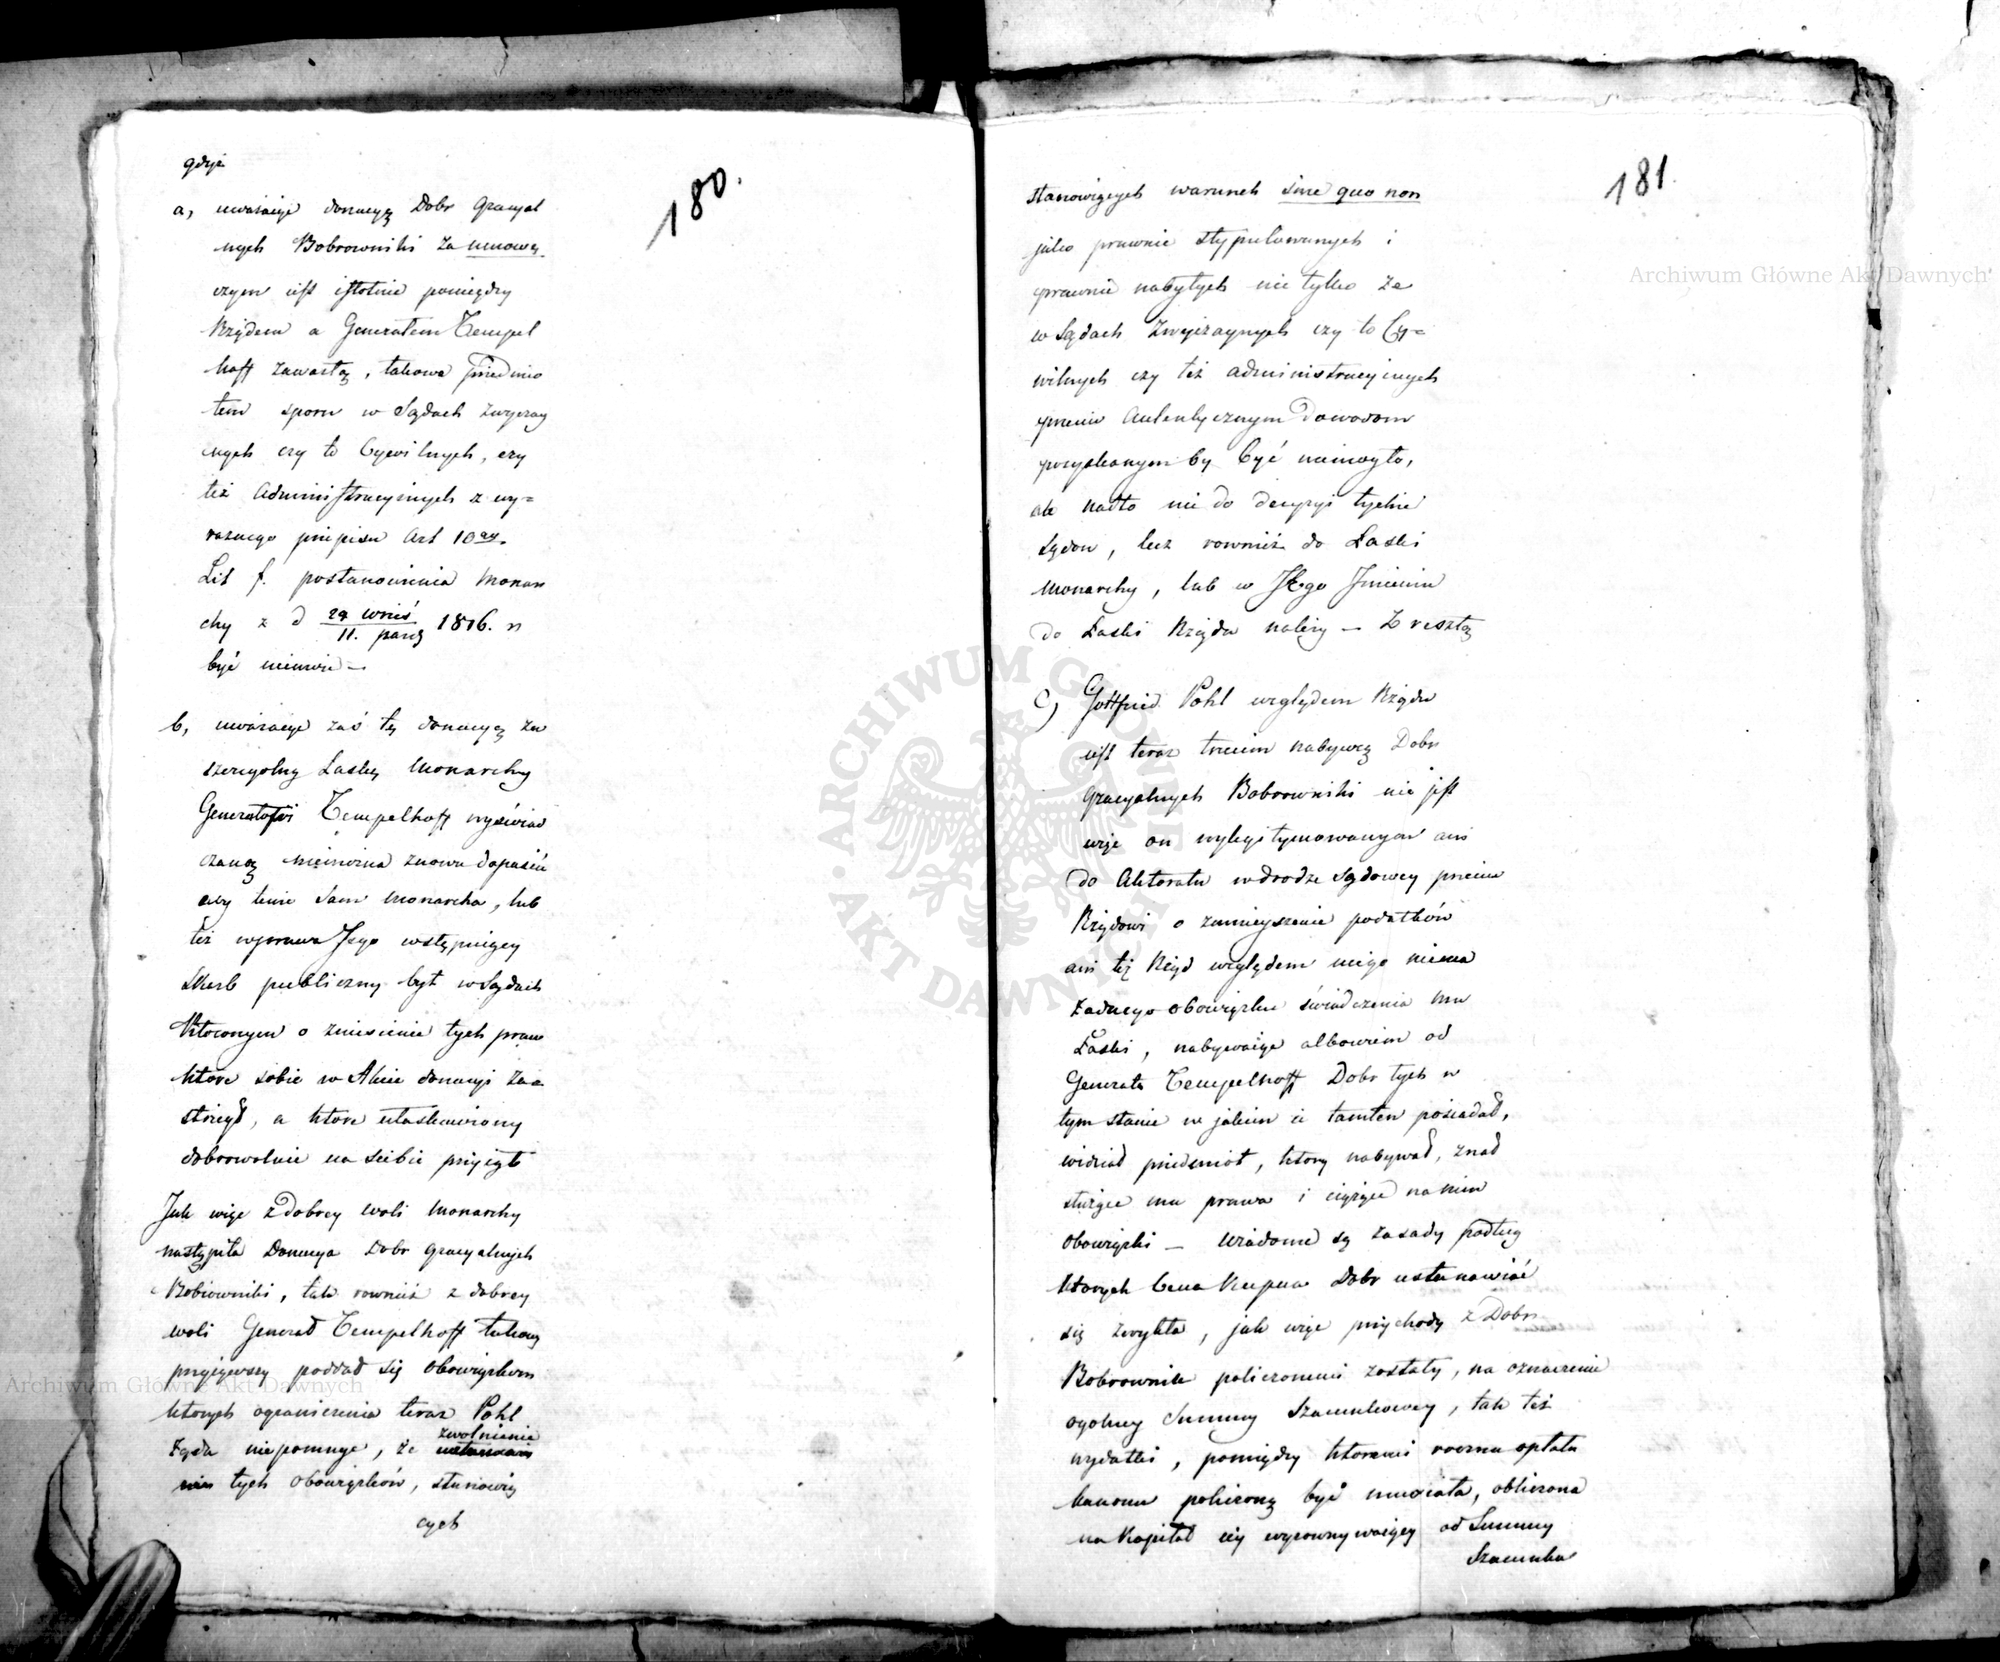 180.
gdyż
a, uważaiąc donacyą Dobr Gracyal
nych Bobrowniki za umowę
czym iest istotnie pomiędzy
Rządem a Generałem Tempel
hoff zawartą, takowa przedmio
tem sporu w Sądach zwyczay
nych czy to Cywilnych, czy
też Administracyinych z wy=
raznego przepisu Art 10go
Lit f. postanowienia Monar
chy z d 29 wrześ / 11. paźd 1816. r
być niemoże —
b, uważaiąc zaś tę donacyą za
szczególną Łaskę Monarchy
Generałowi Tempelhoff wyświad
czaną niemożna znowu dopuścić
aby tenże sam Monarcha, lub
też w prawa Jego wstępuiący
Skarb publiczny był w Sądach
kłóconym o zniesienie tych praw
które sobie w Akcie donacyi za=
strzegł, a które ułaskawiony
dobrowolnie na siebie przyiął
Jak więc z dobrey woli Monarchy
nastąpiła Donacya Dobr gracyalnych
Bobrowniki, tak rownież z dobrey
woli Generał Tempelhoff takową
przyiąwszy poddał się obowiązkom
których ograniczenia teraz Pohl
zwolnienie
żąda niepomnąc, że
tych obowiązków, stanowią
cych
181.
stanowiących warunek sine quo non
jako prawnie stypulowanych i
prawnie nabytych nie tylko że
w Sądach zwyczaynych czy to Cy=
wilnych czy też administracyinych
przeciw autentycznym dowodom
pozyskanym by być niemogło,
ale nadto nie do decyzyi tychże
Sądow, lecz rownież do Łaski
Monarchy, lub w Jego Jmieniu
do Łaski Rządu należy — Z resztą
c) Gottfried Pohl względem Rządu
iest teraz trzecim nabywcą Dobr
Gracyalnych Bobrowniki nie jest
więc on wylegitymowanym ani
do Aktoratu w drodze Sądowey przeciw
Rządowi o zmnieyszenie podatków
ani też Rząd względem niego niema
żadnego obowiązku świadczenia mu
Łaski, nabywaiąc albowiem od
Generała Tempelhoff Dobr tych w
tym stanie w jakim ie tamten posiadał,
widział przedmiot, który nabywał, znał
służące mu prawa i ciążące na nim
obowiązki — Wiadome są zasady podług
których Cena Kupna Dobr ustanowiać
się zwykła, jak więc przychody z Dobr
Bobrownik policzonemi zostały, na oznaczenie
ogolney Summy Szacunkowey, tak też
wydatki, pomiędzy któremi roczna opłata
kanonu policzoną być musiała, obliczona
na Kapitał iey wyrownywaiący od Summy
Szacunku